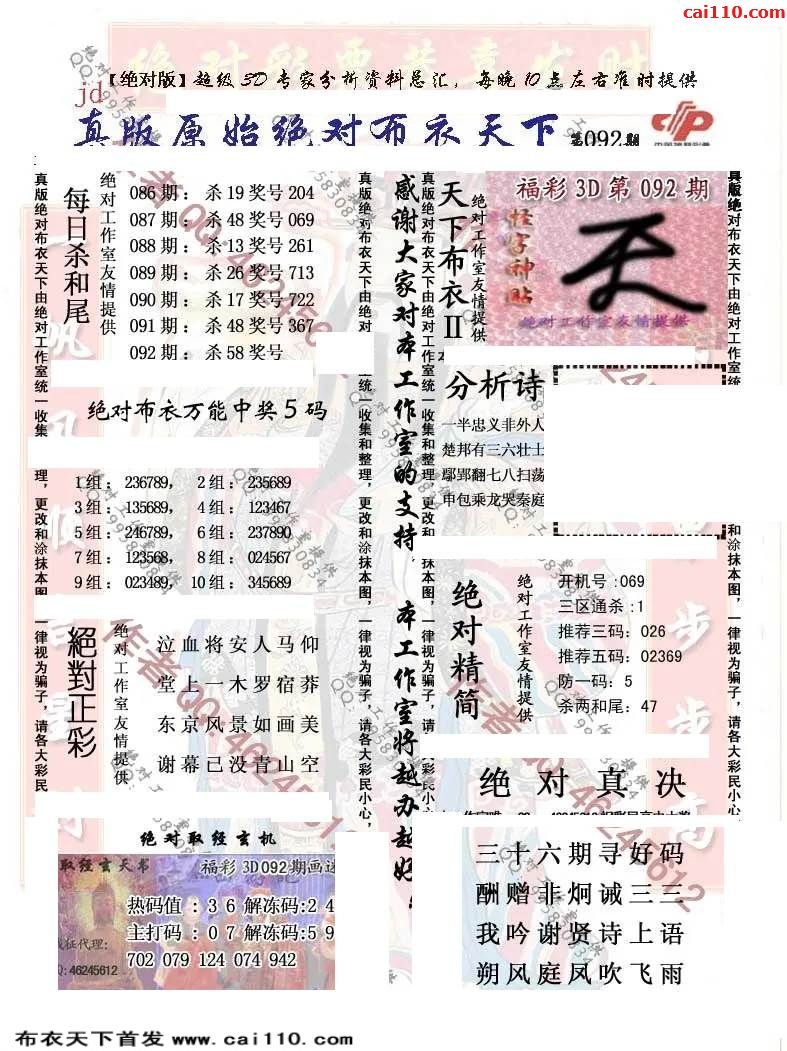 cai110.com
【绝对版】超级3D专家分析资料总汇，每晚10点左右准时提供
jd
真版原始绝对布衣天下
第092期
真版绝对布衣天下由绝对工作室统一收集和整理，更改和涂抹本图，一律视为骗子，请各大彩民小心，
每日杀和尾
绝对工作室友情提供
086期：杀19奖号204
087期：杀48奖号069
088期：杀13奖号261
089期：杀26奖号713
090期：杀17奖号722
091期：杀48奖号367
092期：杀58奖号
绝对布衣万能中奖5码
1组：236789，2组：235689
3组：135689，4组：123467
5组：246789，6组：237890
7组：123568，8组：024567
9组：023489，10组：345689
絕對正彩
绝对工作室友情提供
泣血将安人马仰
堂上一木罗宿莽
东京风景如画美
谢幕已没青山空
绝对取经玄机
取经玄天书
福彩3D092期画迷
热码值：36解冻码:24
主打码：07解冻码:59
702 079 124 074 942
征代理:
:46245612
感谢大家对本工作室的支持，本工作室将越办越好
天下布衣II
绝对工作室友情提供
福彩3D第092期
怪字神贴
绝对工作室友情提供
分析诗
一半忠义非外人
楚邦有三六壮士
鄢郢翻七八扫荡
申包乘龙哭秦庭
绝对精简
绝对工作室友情提供
开机号:069
三区通杀:1
推荐三码：026
推荐五码：02369
防一码：5
杀两和尾：47
绝对真决
三十六期寻好码
酬赠非炯诫三三
我吟谢贤诗上语
朔风庭凤吹飞雨
布衣天下首发 www.cai110.com